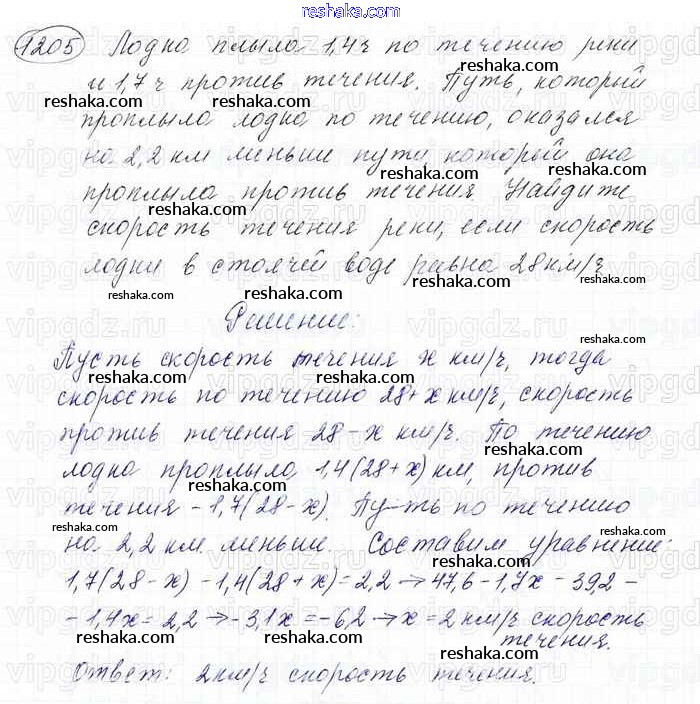 reshaka.com
1205 Лодка плыла 1,4 ч по течению реки
и 1,7 ч против течения. Путь, который
reshaka.com reshaka.com
проплыла лодка по течению, оказался
reshaka.com reshaka.com
на 2,2 км меньше пути который она
reshaka.com
проплыла против течения Найдите
reshaka.com reshaka.com
скорость течения реки, если скорость
лодки в стоячей воде равна 28 км/ч
reshaka.com reshaka.com
Решение:
reshaka.com
Пусть скорость течения x км/ч, тогда
reshaka.com reshaka.com
скорость по течению 28+x км/ч, скорость
reshaka.com
против течения 28-x км/ч. По течению
reshaka.com reshaka.com
лодка проплыла 1,4(28+x) км, против
reshaka.com reshaka.com
течения - 1,7(28-x). Путь по течению
reshaka.com reshaka.com
на 2,2 км меньше. Составим уравнение:
reshaka.com
1,7(28-x) - 1,4(28+x) = 2,2 → 47,6 - 1,7x - 39,2 -
reshaka.com reshaka.com
- 1,4x = 2,2 → - 3,1x = -6,2 → x = 2 км/ч скорость
reshaka.com reshaka.com
течения.
Ответ: 2 км/ч скорость течения.
reshaka.com reshaka.com